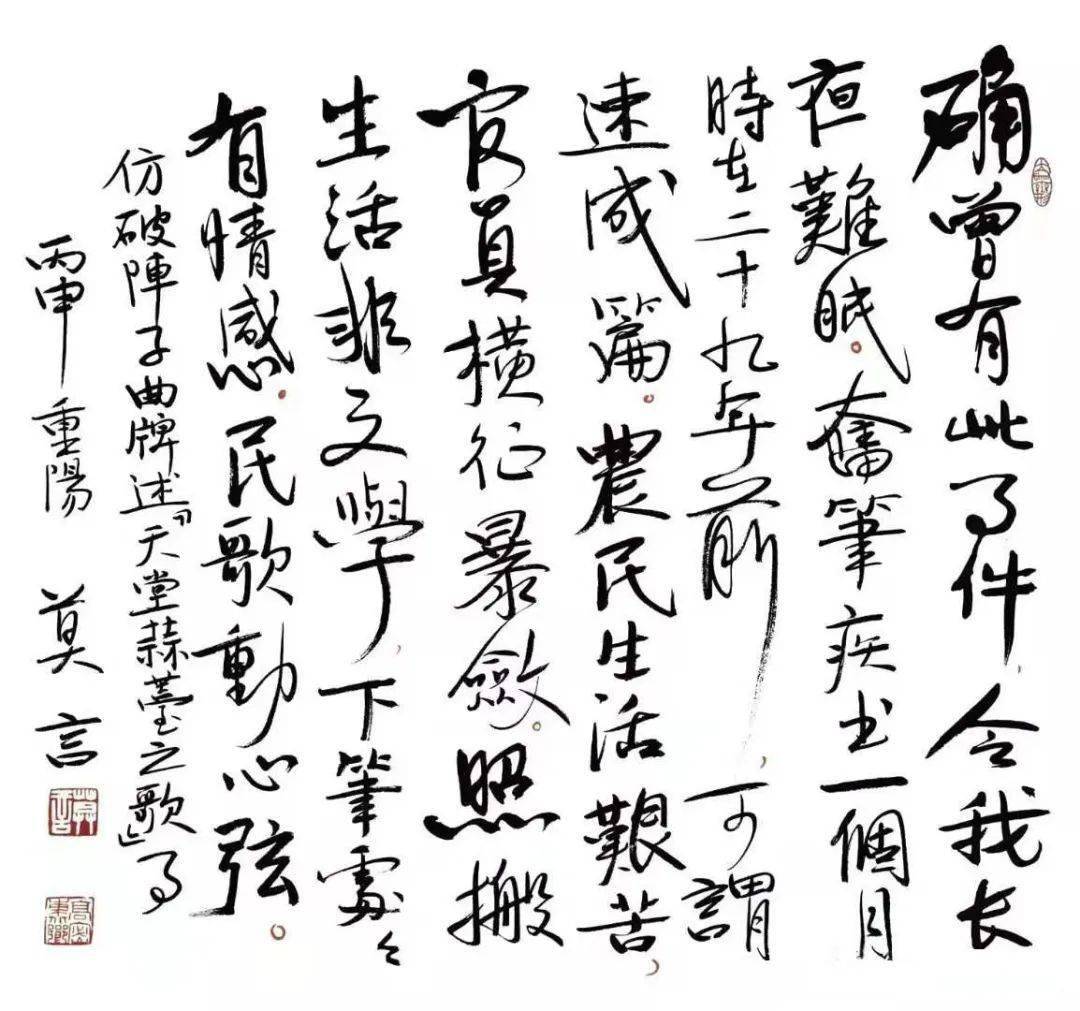 確曾有此事件，令我长
夜難眠。奮筆疾书一個月
時在二十九年前，可謂
速成篇。農民生活艱苦，
官員橫征暴斂。照搬
生活非文學，下筆處々
有情感。民歌動心弦。
仿破陣子曲牌述「天堂蒜薹之歌」事
丙申 重陽 莫言
莫言
高密東鄉